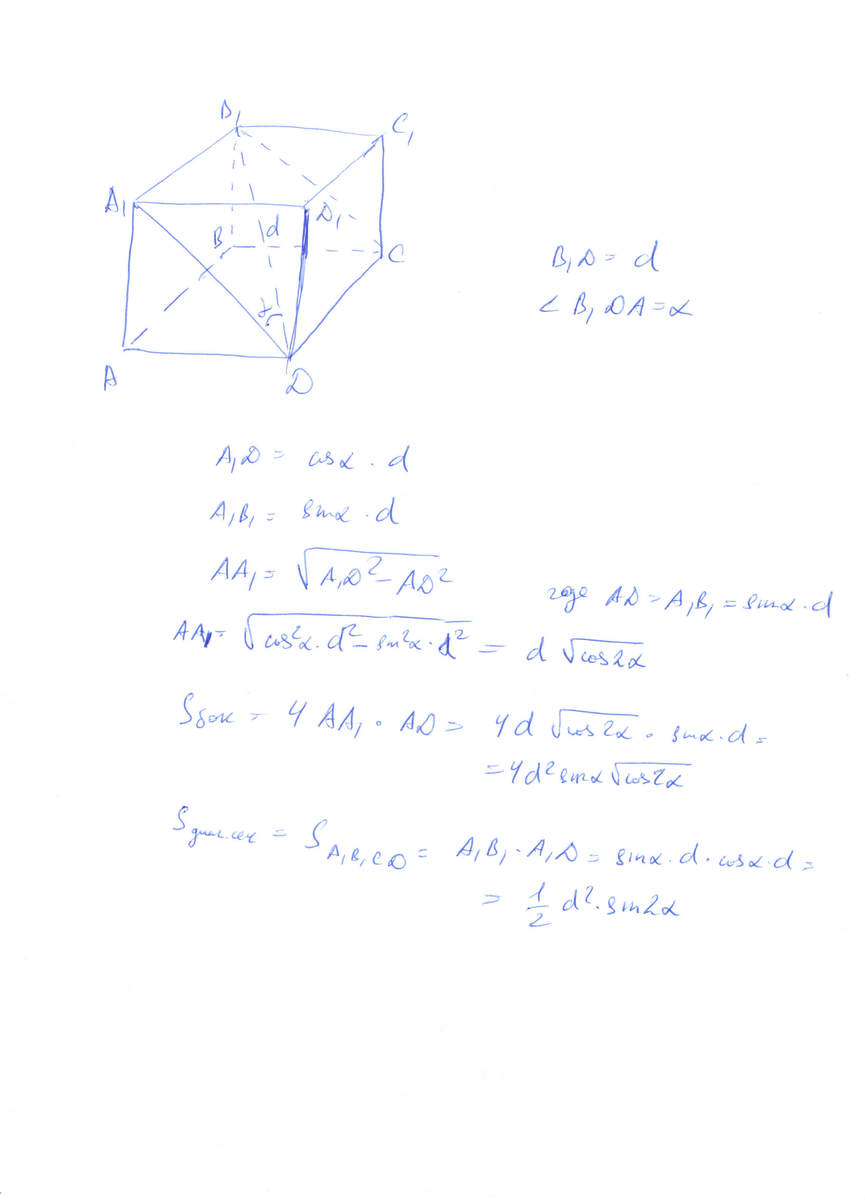 B₁
C₁
A₁
d
D₁
B
C
α
A
D
B₁D = d
< B₁DA = α
A₁D = cosα · d
A₁B₁ = sinα · d
AA₁ = √(A₁D² - AD²)
где AD = A₁B₁ = sinα · d
AA₁ = √(cos²α · d² - sin²α · d²) = d √cos2α
Sбок = 4 AA₁ · AD = 4d √cos2α · sinα · d =
= 4d² sinα √cos2α
Sдиаг.сеч = S A₁B₁CD = A₁B₁ · A₁D = sinα · d · cosα · d =
= 1/2 d² · sin2α